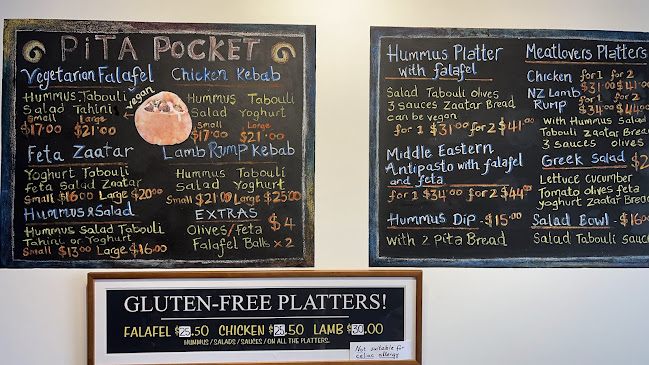 PiTA POCKET
Vegetarian Falafel
vegan
Hummus Tabouli
Salad Tahini
Small Large
$17.00 $21.00
Chicken Kebab
Hummus Tabouli
Salad Yoghurt
Small Large
$17.00 $21.00
Feta Zaatar
Yoghurt Tabouli
Feta Salad Zaatar
Small $16.00 Large $20.00
Lamb Rump Kebab
Hummus Tabouli
Salad Yoghurt
Small $21.00 Large $25.00
Hummus & Salad
Hummus Salad Tabouli
Tahini or Yoghurt
Small $13.00 Large $16.00
EXTRAS
Olives/Feta
Falafel Balls x 2
$4
Hummus Platter
with falafel
Salad Tabouli olives
3 sauces Zaatar Bread
can be vegan
for 1 $31.00 for 2 $41.00
Middle Eastern
Antipasto with falafel
and feta
for 1 $34.00 for 2 $44.00
Hummus Dip - $15.00
with 2 Pita Bread
Meatlovers Platters
for 1 for 2
Chicken $31.00 $41
NZ Lamb for 1 for 2
Rump $34.00 $44.00
with Hummus Salad
Tabouli zaatar Bread
3 sauces olives
Greek Salad $2
Lettuce cucumber
Tomato olives feta
yoghurt zaatar Bread
Salad Bowl - $16.00
Salad Tabouli sauce
GLUTEN-FREE PLATTERS!
FALAFEL $23.50 CHICKEN $25.50 LAMB $30.00
HUMMUS / SALADS / SAUCES / ON ALL THE PLATTERS.
Not suitable for
celiac allergy